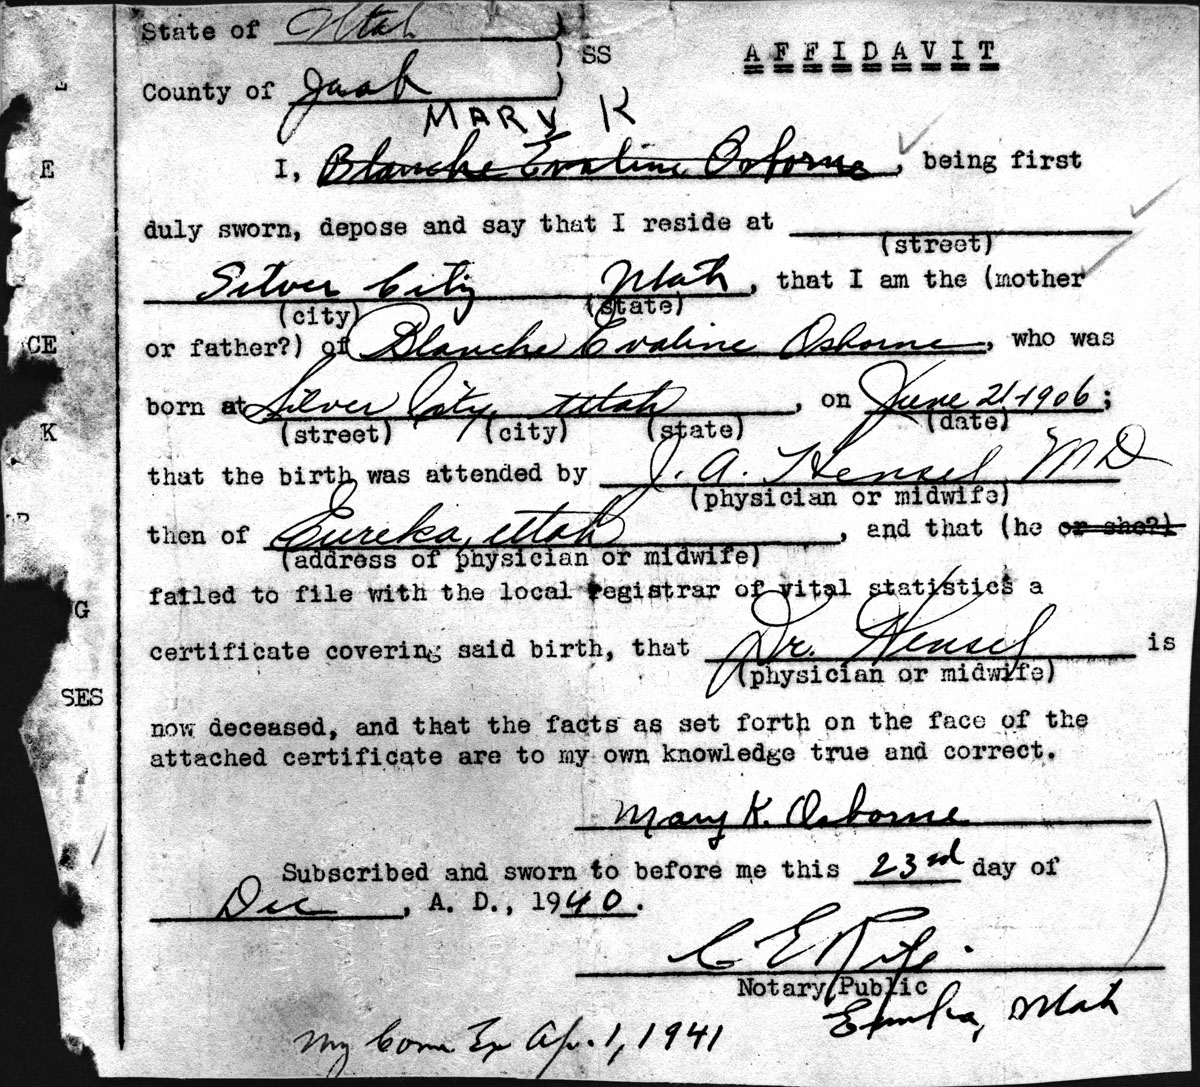 State of Utah
SS
AFFIDAVIT
County of Juab
MARY K
I, Blanche Evaline Osborne, being first
duly sworn, depose and say that I reside at
(street)
Silver City Utah, that I am the (mother
(city) (state)
or father?) of Blanche Evaline Osborne, who was
born at Silver City, Utah, on June 21-1906;
(street) (city) (state) (date)
that the birth was attended by J. A. Hensel MD
(physician or midwife)
then of Eureka, Utah, and that (he or she?)
(address of physician or midwife)
failed to file with the local registrar of vital statistics a
certificate covering said birth, that Dr. Hensel is
(physician or midwife)
now deceased, and that the facts as set forth on the face of the
attached certificate are to my own knowledge true and correct.
Mary K. Osborne
Subscribed and sworn to before me this 23rd day of
Dec, A. D., 1940.
C E
Notary Public
Eureka, Utah
My Com Ex Ap. 1, 1941
E
CE
K
G
SES